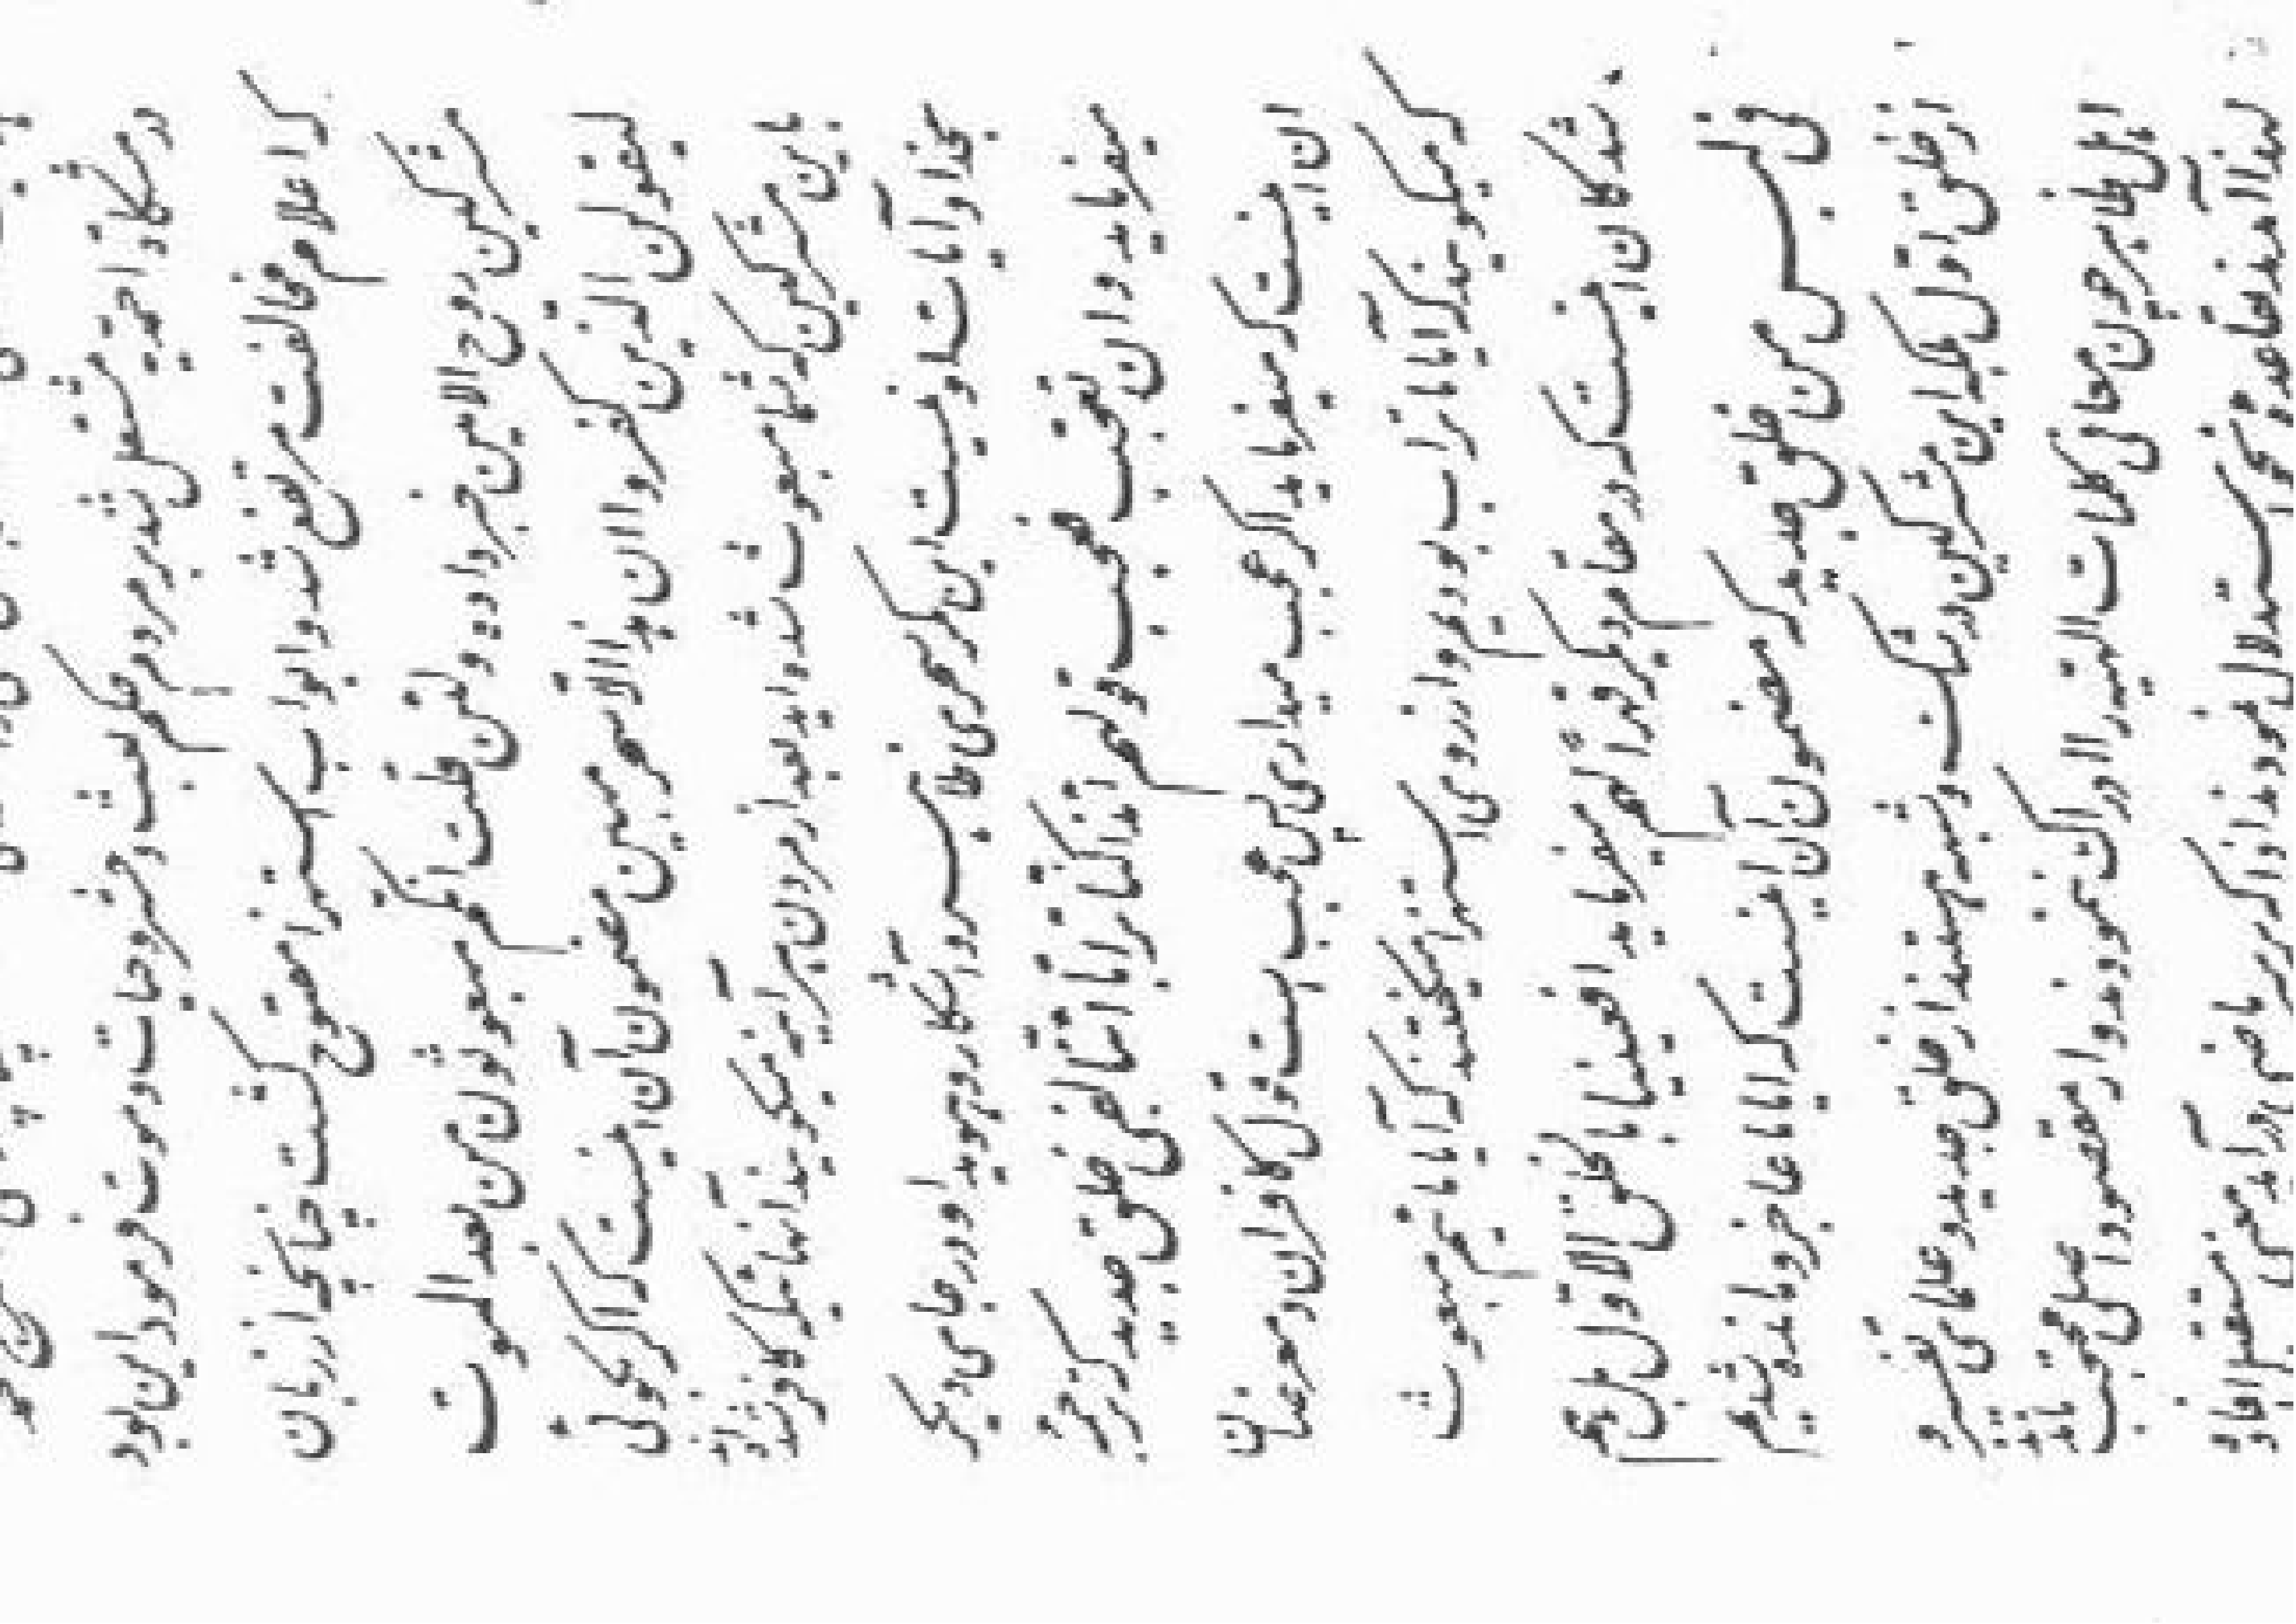 در مشکاة احمدیه مشتعل شد بر مردم حکم بعث و حشر و حیات و موت فرمود این بود
که اعلام مخالفت مرتفع شد و ابواب استهزاء مفتوح گشت چنانچه از زبان
مشرکین روح الامین خبر داده و لئن قلت انکم مبعوثون من بعد الموت
لیقولن الذین کفروا ان هذا الا سحر مبین مضمون آن اینست که اگر بگوئی
باین مشرکین که شما مبعوث شده‌اید بعد از مردن هر آینه میگویند آنهائیکه کافر شده‌اند
بخدا و آیات او نیست این مگر سحری ظاهر و آشکار و هویدا و در جای دیگر
میفرماید و ان تعجب فعجب قولهم ائذا کنا ترابا ائنا لفی خلق جدید که ترجمه
آن اینست که میفرماید اگر عجب میداری پس عجب است قول کافران و معرضان
که میگویند که آیا ما تراب بودیم و از روی استهزاء میگفتند که آیا مائیم مبعوث
شدگان اینست که در مقام دیگر قهراً لهم میفرماید افعیینا بالخلق الاول بل هم
فی لبس من خلق جدید که مضمون آن اینست که آیا ما عاجز و مانده شدیم
از خلق اول بلکه این مشرکین در شک و شبهه هستند از خلق جدید و علمای تفسیر و
اهل ظاهر چون معانی کلمات الهیه را ادراک ننمودند و از مقصود اصلی محتجب ماندند
لهذا بقاعده نحو استدلال نمودند اذا که بر سر ماضی درآید معنی مستقبل افاده